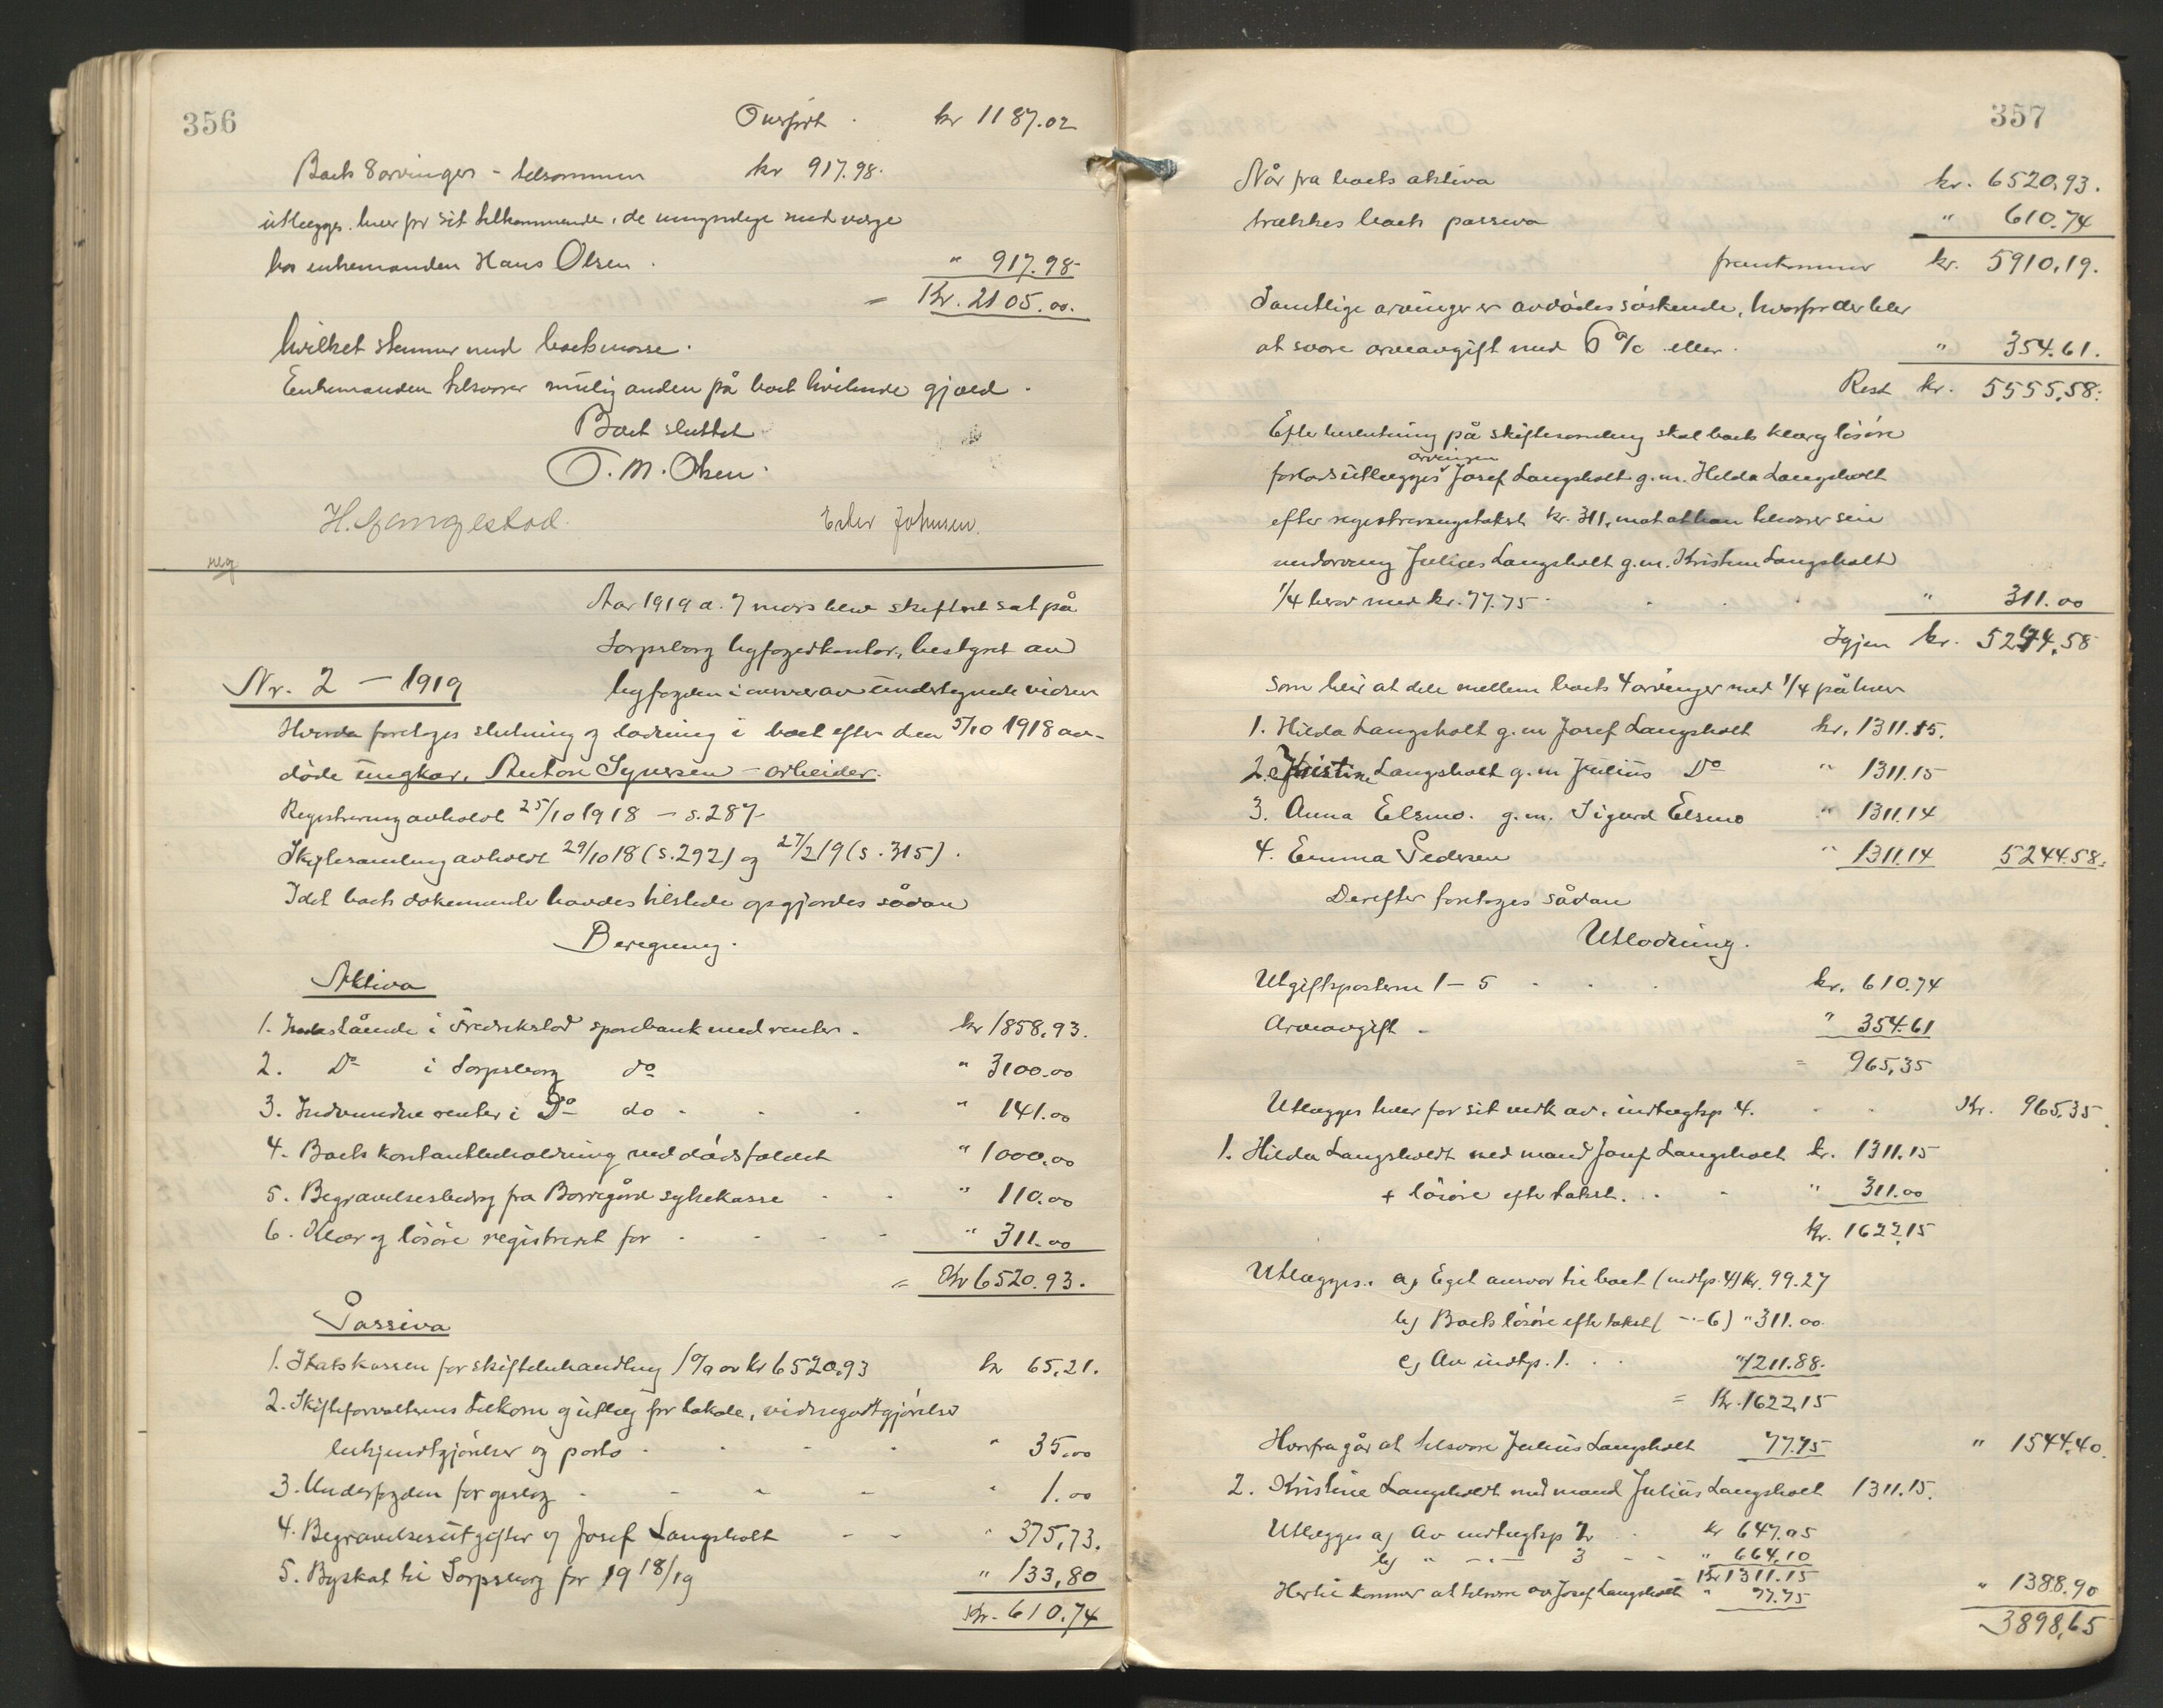 356
Overført . kr 1187.02
Boets 8 arvinger - tilsammen kr 917.98.
utlægges hver for sit tilkommende, de umyndige med værge
hos enkemanden Hans Olsen . " 917.98
= Kr. 2105.00.
hvilket stemmer med boets masse.
Enkemanden tilsvarer mulig anden på boet hvilende gjæld.
Boet sluttet
O. M. Olsen.
H. Johnsen.
Aar 1919 d. 7 mars blev skifteret sat på
Sarpsborg byfogedkontor, bestyret av
Nr. 2 - 1919 byfogden i overvær av undertegnede vidner
Hvorda foretoges slutning og lodning i boet efter den 5/10 1918 av-
døde ungkar, Anton Syversen - arbeider.
Registrering avholdt 25/10 1918 - s. 287
Skiftesamling avholdt 29/10 18 (s. 292) og 27/2 19 (s. 315).
Idet boets dokumenter havdes tilstede opgjordes sådan
Beregning.
Aktiva
1. Indestående i Fredrikstad sparebank med renter. kr 1858,93.
2. Do i Sarpsborg do " 3100.00
3. Indvundne renter i Do do - . . " 141.00
4. Boets kontantbeholdning ved dødsfaldet " 1000,00
5. Begravelsesbidrag fra Borregård sykekasse - . " 110.00
6. Klær og løsøre registreret for - - - - " 311.00
= Kr 6520.93.
Passiva
1. Statskassen for skiftebehandling 1% av kr 6520.93 kr 65,21.
2. Skifteforvalterens tilkom. og utlæg for lokale, vidnegodtgjørelse
bekjendtgjørelser og porto - . - . " 35.00
3. Underfogden for opslag - - - - " 1.00
4. Begravelsesutgifter v/ Josef Langsholt - - " 375,73.
5. Byskat til Sarpsborg for 1918/19 " 133,80
Kr. 610,74
357
Når fra boets aktiva kr. 6520,93.
trækkes boets passiva " 610.74
fremkommer kr. 5910,19.
Samtlige arvinger er avdødes søskende, hvorfor der blir
at svare arveavgift med 6 % eller . " 354.61.
Rest kr. 5555,58.
Efter beslutning på skiftesamling skal boets klær og løsøre
arvingen
forlods utlægges Josef Langsholt g.m. Hilda Langsholt
efter registreringstakst kr. 311, mot at han tilsvarer sin
medarving Julius Langsholt g.m. Kristine Langsholt
1/4 herav med kr. 77.75 . . . . " 311.00
Igjen kr. 5244,58
som blir at dele mellem boets 4 arvinger med 1/4 på hver
1. Hilda Langsholt g.m Josef Langsholt kr. 1311.15.
2. Kristine Langsholt g.m Julius Do " 1311.15
3. Anna Elsmo. g.m. Sigurd Elsmo " 1311.14
4. Emma Pedersen " 1311.14 5244.58.
Derefter foretoges sådan
Utlodning.
Utgiftsposterne 1 - 5 . . . kr. 610.74
Arveavgift - " 354.61
= 965,35
Utlægges hver for sit vedk. av. indtægtsp 4. . . Kr. 965.35
1. Hilda Langsholdt med mand Josef Langsholt kr. 1311.15
+ løsøre efter takst. . - " 311.00
Kr. 1622,15
Utlægges: a, Eget ansvar til boet (indtp. 4) kr. 99.27
b, Boets løsøre efter takst ( -"- 6) " 311.00.
c, Av indtp. 1. . . " 1211.88.
= Kr. 1622,15
Herfra går at tilsvare Julius Langsholt 77.75 " 1544.40.
2. Kristine Langsholdt med mand Julius Langsholt 1311.15.
Utlægges a, Av indtægtsp 1 . kr 647.05
b, " -"- 3 - - " 664,10
Kr 1311.15
Hertil kommer at tilsvare av Josef Langsholt " 77.75 " 1388.90
3898,65